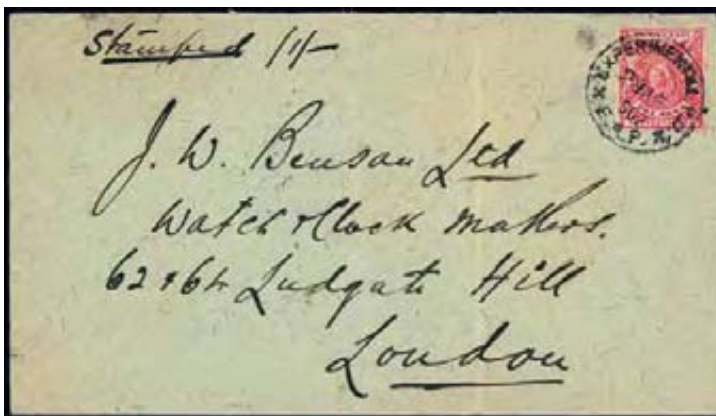 Stamped 1/-
EXPERIMENTAL
J. W. Benson Ltd
Watch & Clock Makers.
62 & 64 Ludgate Hill
London